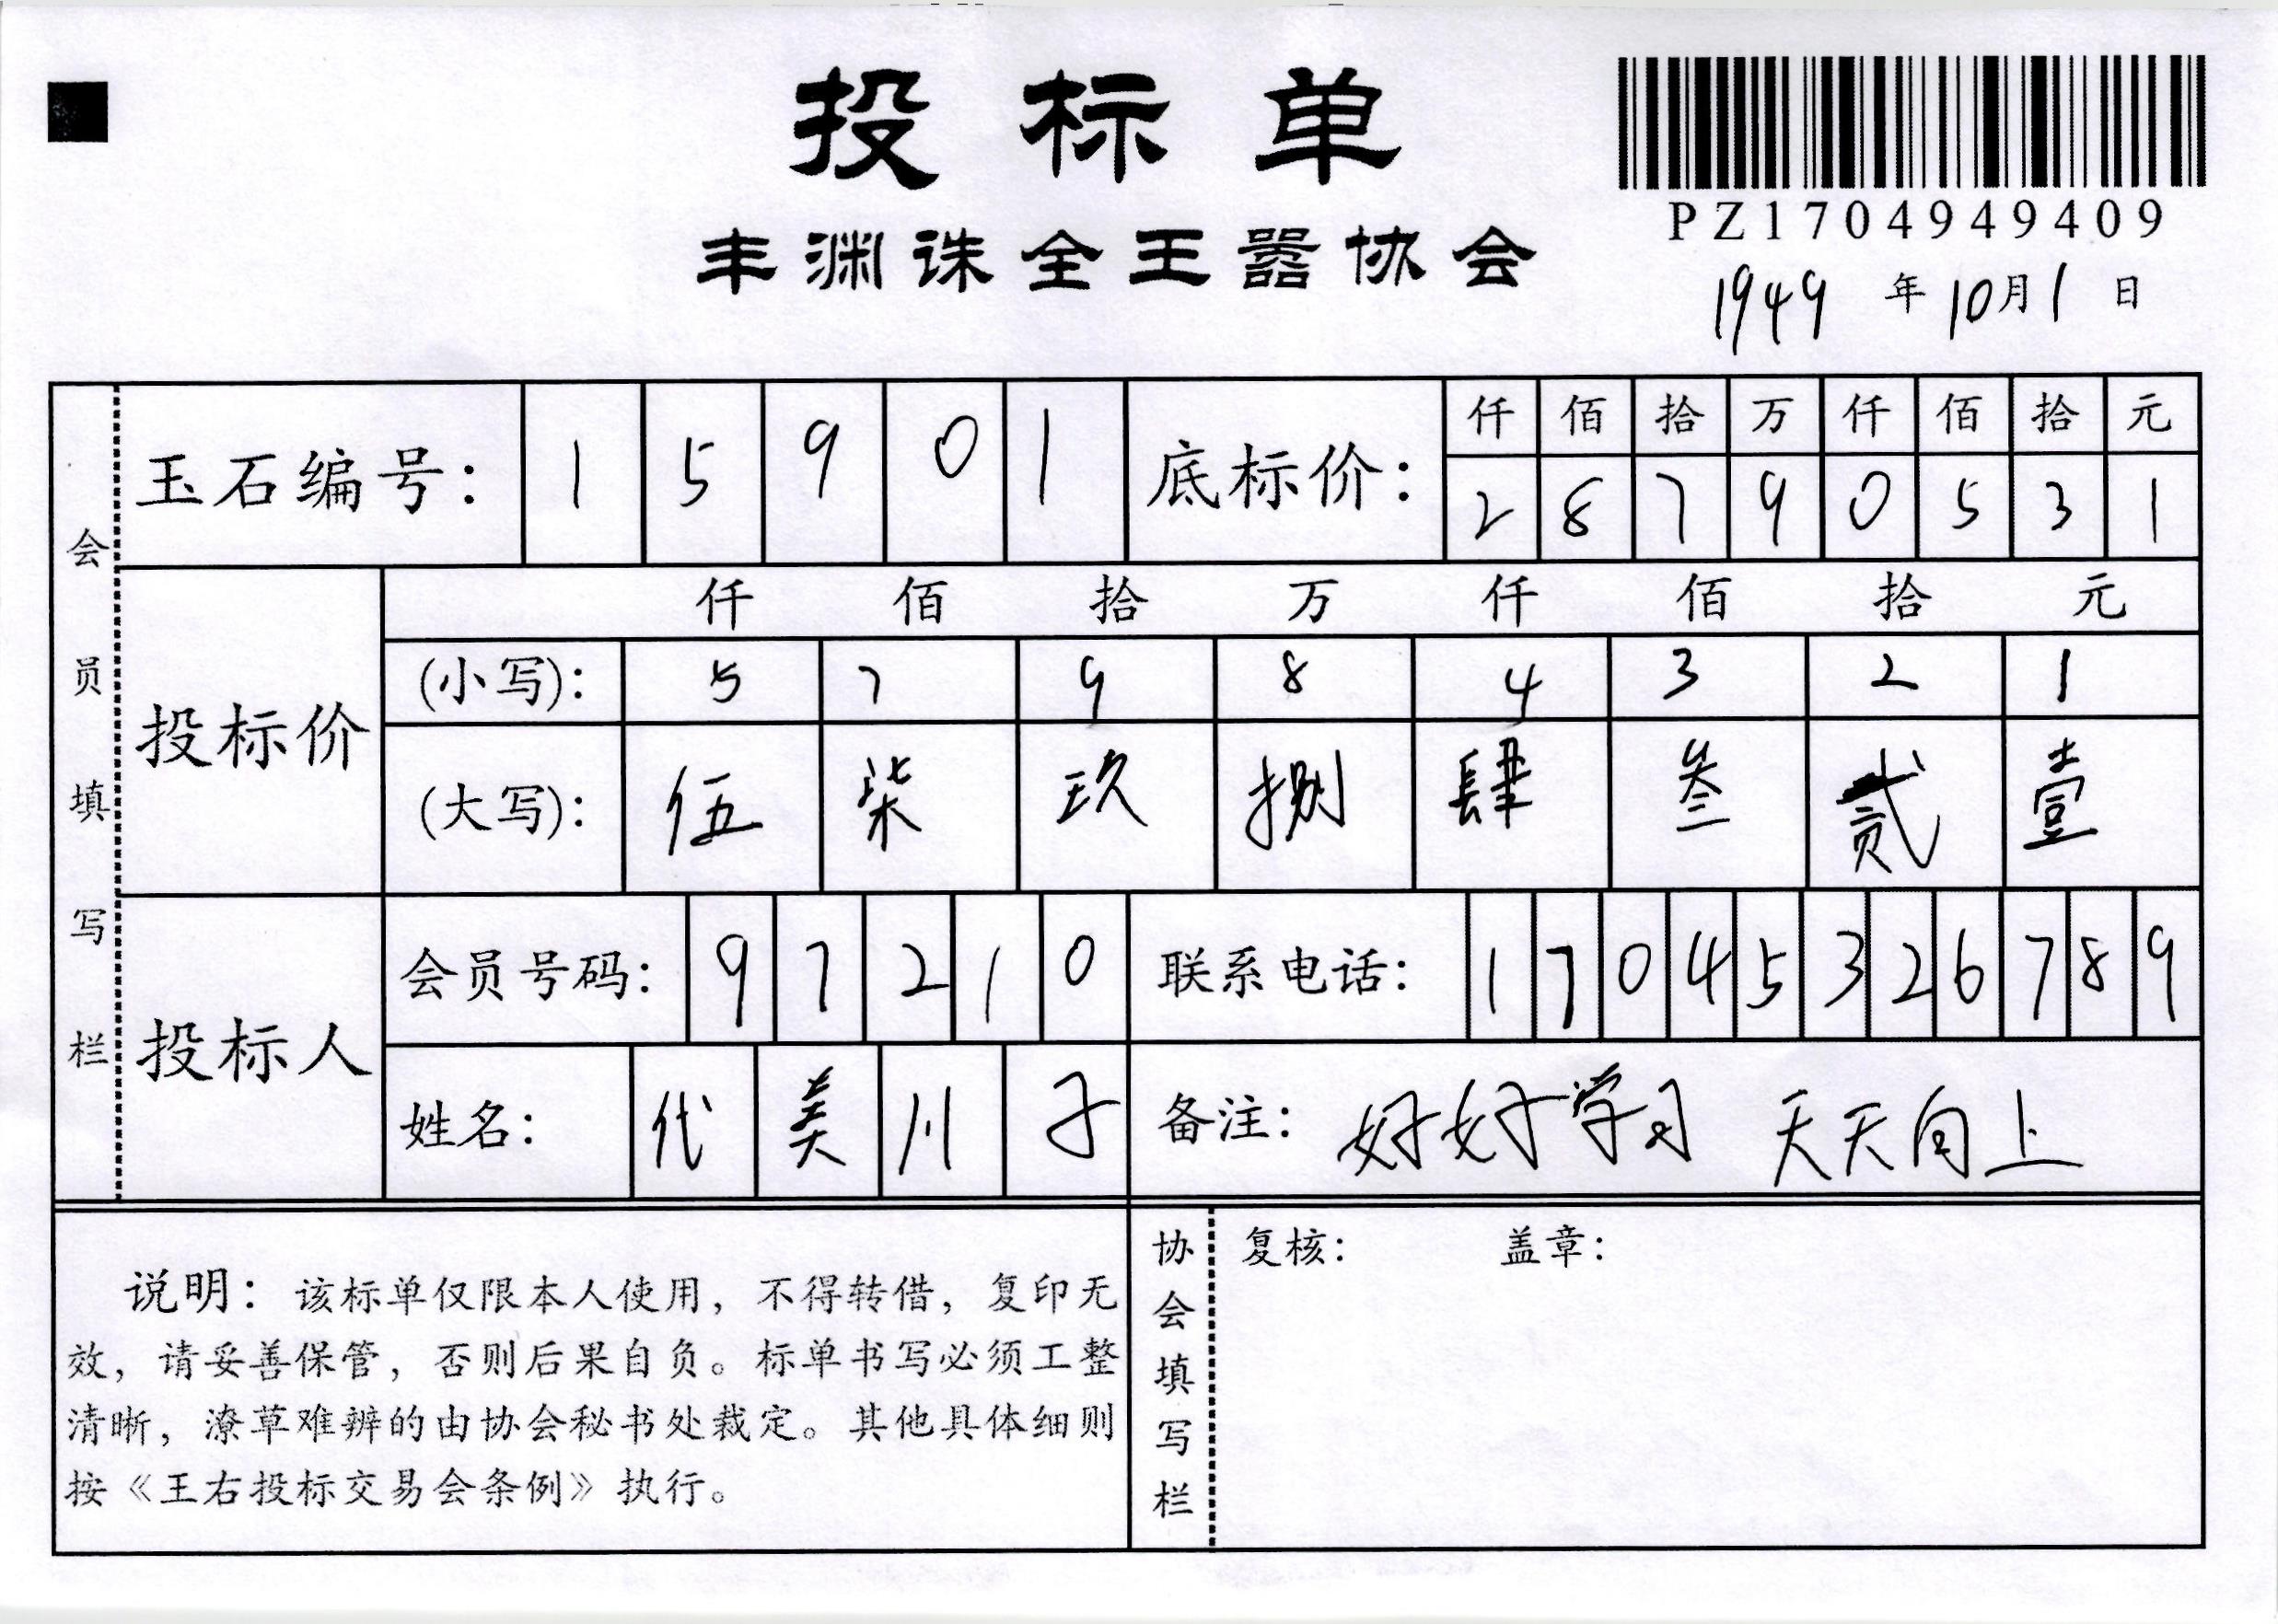 投标单
PZ1704949409
丰渊诛全王嚣协会
1949 年 10月1 日
会员填写栏
玉石编号: 1 5 9 0 1
底标价: 仟 佰 拾 万 仟 佰 拾 元
2 8 7 9 0 5 3 1
投标价
仟 佰 拾 万 仟 佰 拾 元
(小写): 5 7 9 8 4 3 2 1
(大写): 伍 柒 玖 捌 肆 叁 贰 壹
投标人
会员号码: 9 7 2 1 0
联系电话: 1 7 0 4 5 3 2 6 7 8 9
姓名: 代 美 川 子
备注: 好好学习 天天向上
说明: 该标单仅限本人使用, 不得转借, 复印无
效, 请妥善保管, 否则后果自负。标单书写必须工整
清晰, 潦草难辨的由协会秘书处裁定。其他具体细则
按《王右投标交易会条例》执行。
协会填写栏
复核: 盖章: